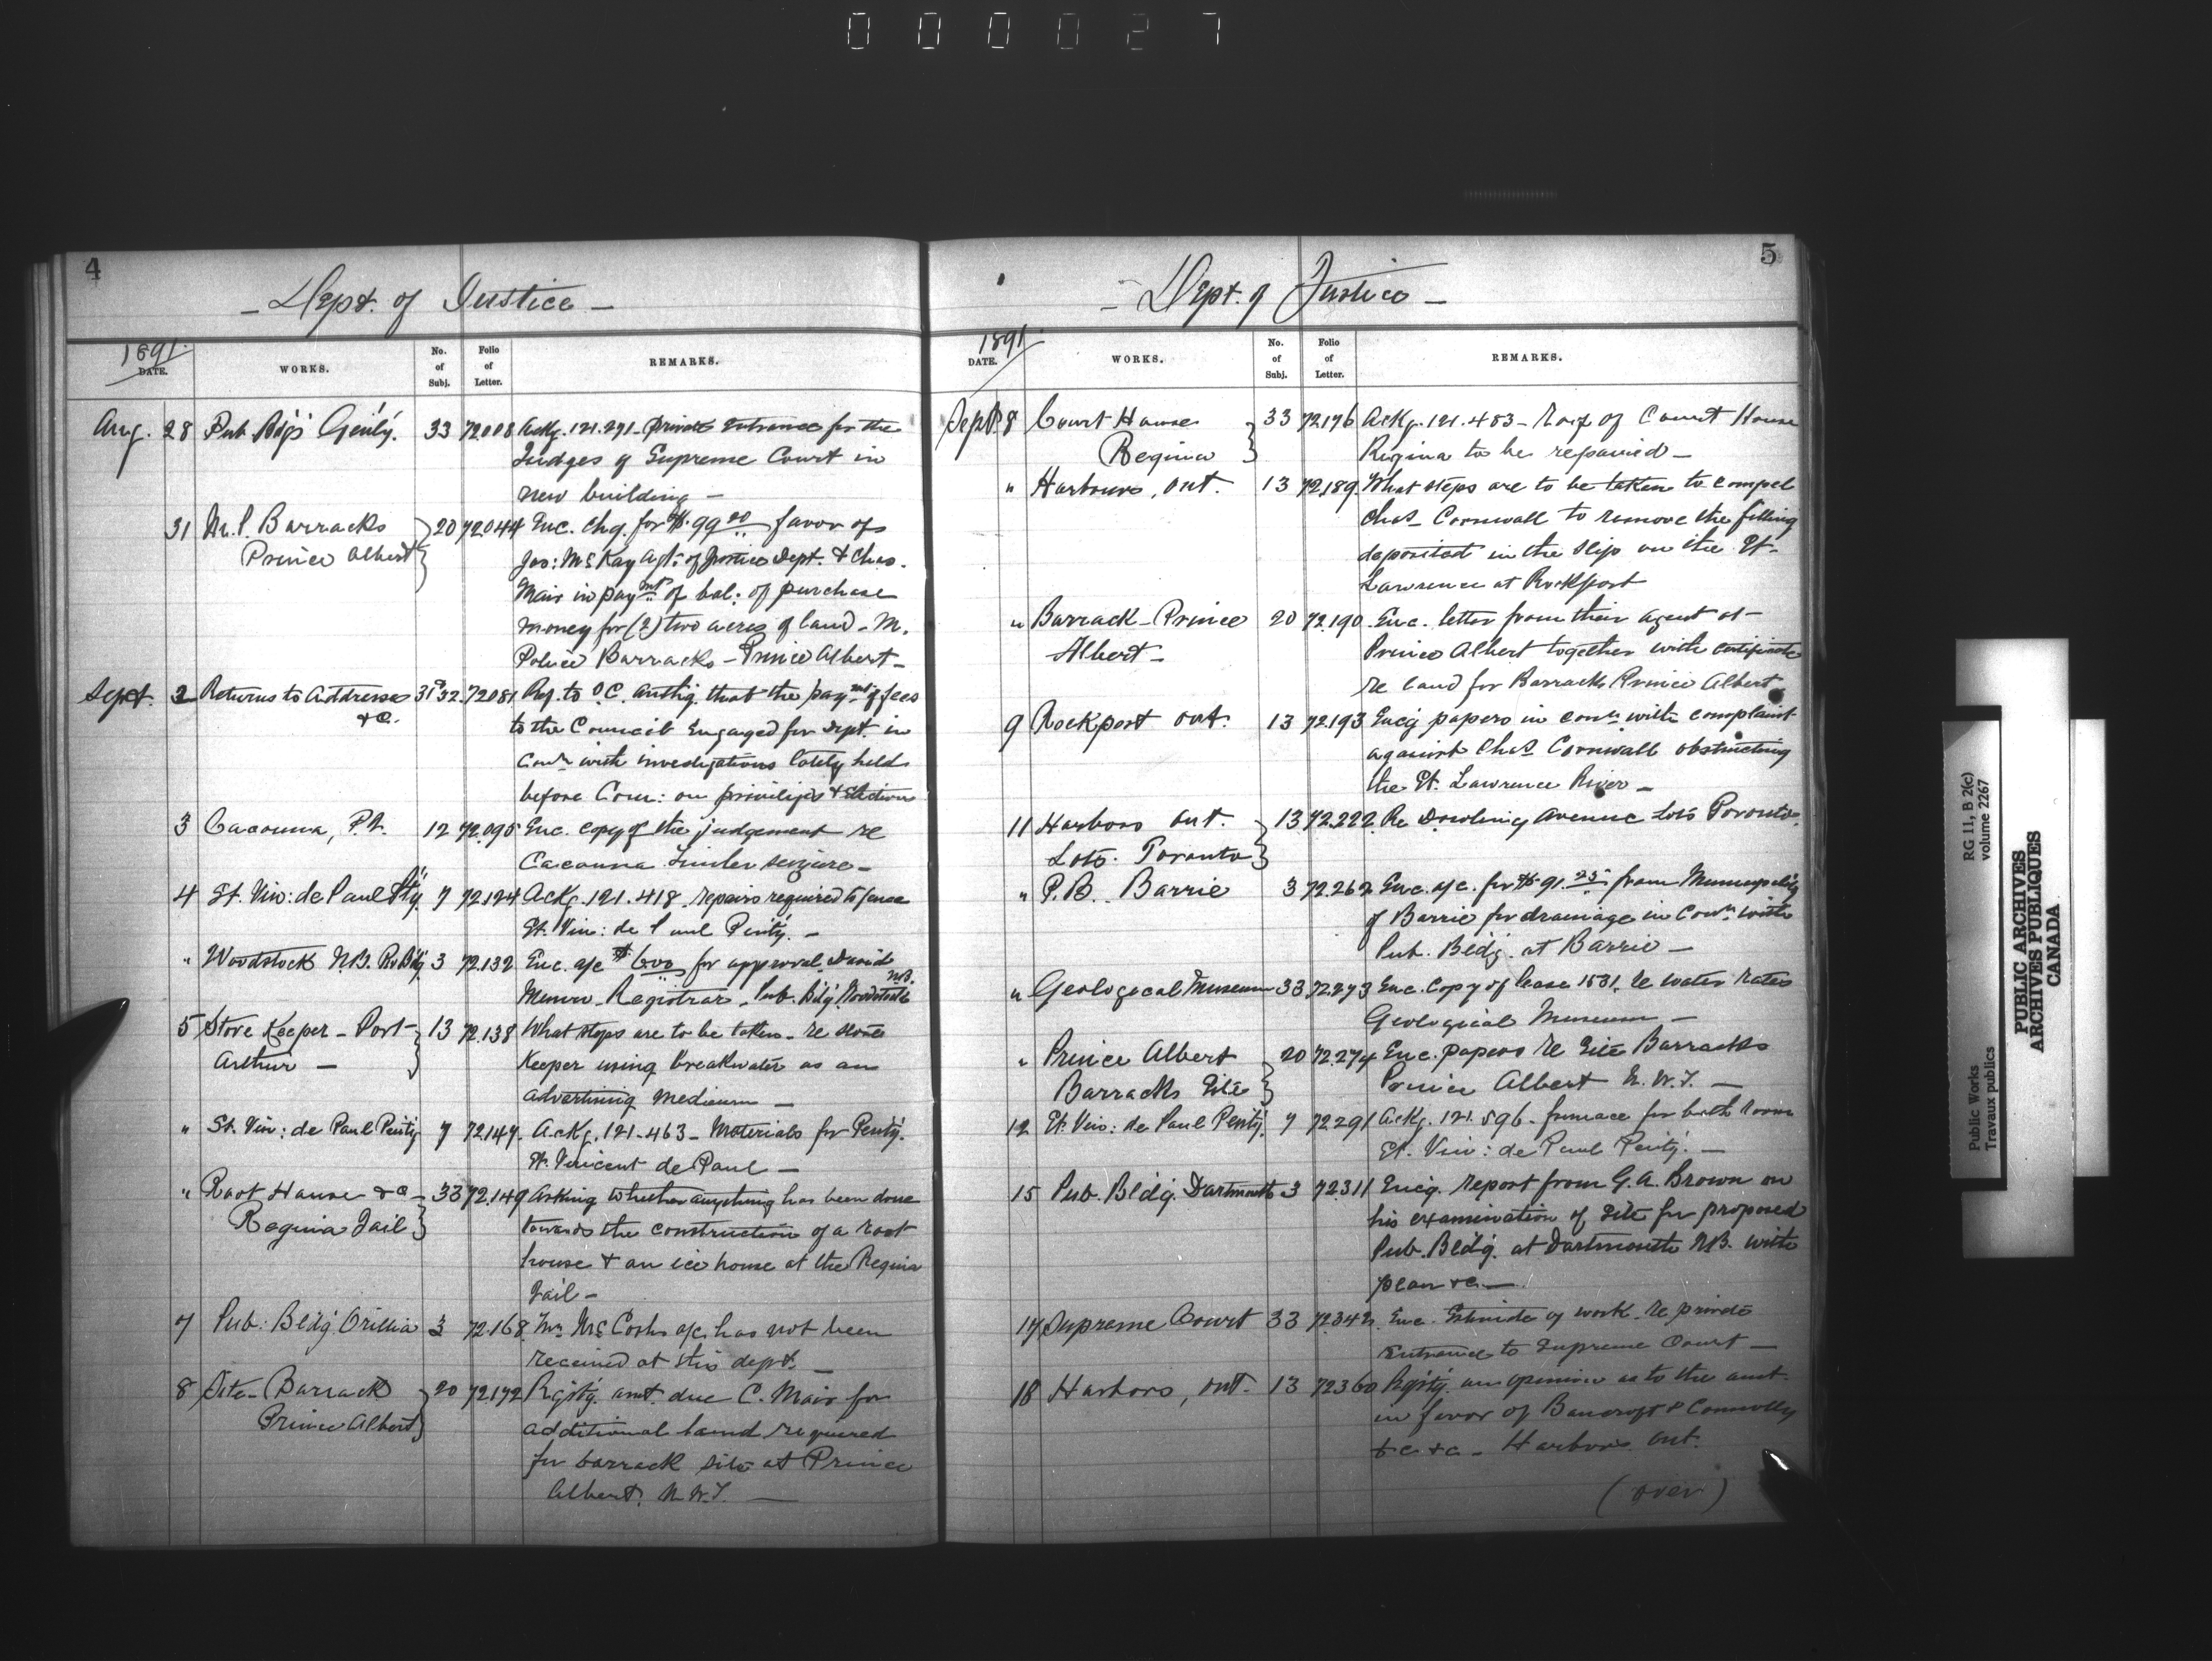 000027
4
- Dept. of Justice -
1891.
DATE. WORKS. No. of Subj. Folio of Letter. REMARKS.
Aug. 28 Pub. Bdgs Gen'ly. 33 72008 Ackg. 121.291 - Private entrance for the
Judges of Supreme Court in
new building -
31 M. P. Barracks 20 72044 Enc. chq. for $99.00 favor of
Prince Albert Jas: McKay agt: of Justice Dept. & Chas.
Mair in paymt of bal: of purchase
money for (2) two acres of land - M.
Police Barracks - Prince Albert -
Sept. 2 Returns to Addresses 31 & 32. 72081 Ref. to O.C. authg. that the paymt of fees
&c. to the Council Engaged for Dept. in
Conn with investigations lately held
before Com: on privileges & Elections
3 Cacouna, P.Q. 12 72.095 Enc. copy of the judgement re
Cacouna Timber seizure -
4 St. Vin: de Paul Pty. 7 72.124 Ackg. 121.418. repairs required to fence
St. Vin: de Paul Penty. -
" Woodstock N.B. Pub Bdg 3 72.132 Enc. a/c $600 for approval. David
Munro - Registrar - Pub. Bdg. Woodstock N.B.
5 Store Keeper - Port 13 72.138 What steps are to be taken - re store
Arthur - Keeper using breakwater as an
advertising medium -
" St. Vin: de Paul Penty 7 72147. Ackg. 121-463 - Materials for Penty.
St. Vincent de Paul -
" Root House &c - 33 72.149 Asking whether anything has been done
Regina Jail towards the construction of a root
house & an ice house at the Regina
Jail -
7 Pub: Bldg Orillia 3 72.168 Mr. McCosh a/c has not been
received at this dept. -
8 Site - Barrack 20 72172 Rqstg. amt. due C. Mair for
Prince Albert additional land required
for barrack site at Prince
Albert. N.W.T. -
5
- Dept. of Justice -
1891.
DATE. WORKS. No. of Subj. Folio of Letter. REMARKS.
Sept. 8 Court House 33 72176 Ackg. 121.483 - Roof of Court House
Regina Regina to be repaired -
" Harbours, Ont. 13 72,189. What steps are to be taken to compel
Chas. Cornwall to remove the filling
deposited in the slip on the St.
Lawrence at Rockport
" Barrack - Prince 20 72.190. Enc. letter from their agent at -
Albert - Prince Albert together with certificate
re land for Barracks Prince Albert
9 Rockport Ont. 13 72.193 Encg papers in conn with complaint
against Chas. Cornwall obstructing
the St. Lawrence River -
11 Harbors Ont. 13 72.222. Re Dowling Avenue Lots Toronto.
Lots. Toronto
" P.B. Barrie 3 72.262 Enc. a/c. for $91.25 from Municipality
of Barrie for drainage in Conn with
Pub. Bldg. at Barrie -
" Geological Museum 33 72.273 Enc. Copy of lease 1531. re water rates
Geological Museum -
" Prince Albert 20 72.274 Enc. papers re Site Barracks
Barracks Site Prince Albert N.W.T. -
12 St. Vin: de Paul Penty. 7 72291 Ackg. 121.596. furnace for bath room
St. Vin: de Paul Penty. -
15 Pub. Bldg. Dartmouth 3 72311 Encg. report from G. A. Brown on
his examination of Site for proposed
Pub. Bldg. at Dartmouth N.B. with
plan &c. -
17 Supreme Court 33 72342. Enc. Estimate of work. re private
entrance to Supreme Court -
18 Harbors, Ont. 13 72360 Rqstg. an opinion as to the amt.
in favor of Bancroft & Connolly
&c &c - Harbors Ont.
(over)
Public Works
Travaux publics
RG 11, B 2(c)
volume 2267
PUBLIC ARCHIVES
ARCHIVES PUBLIQUES
CANADA